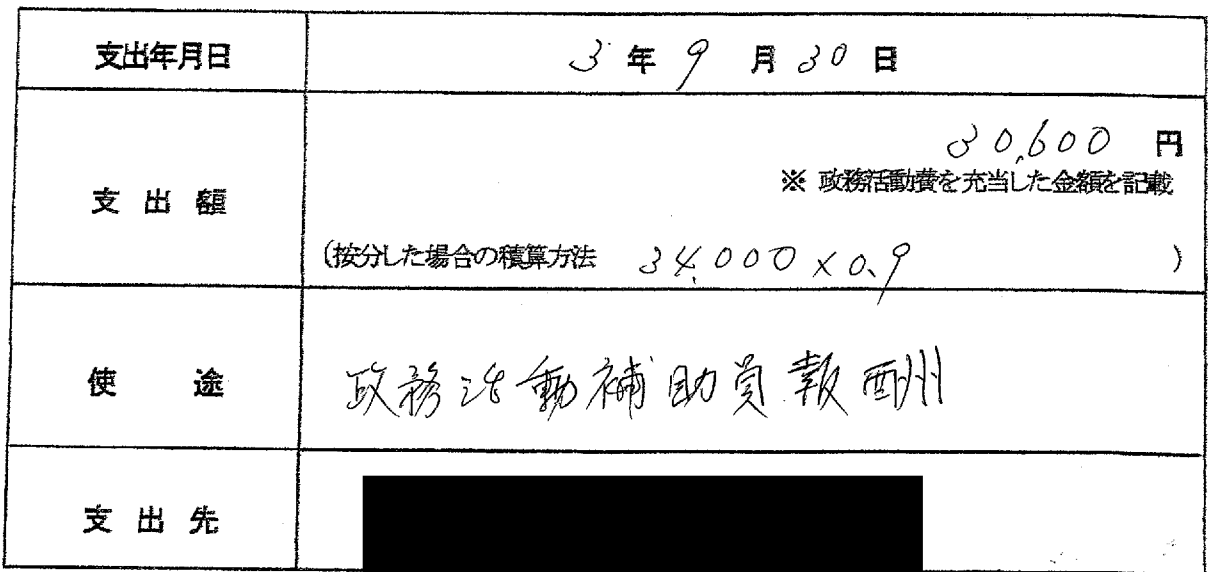 支出年月日
3年9月30日
支出額
30,600円
※ 政務活動費を充当した金額を記載
(按分した場合の積算方法 34,000×0.9 )
使途
政務活動補助員報酬
支出先